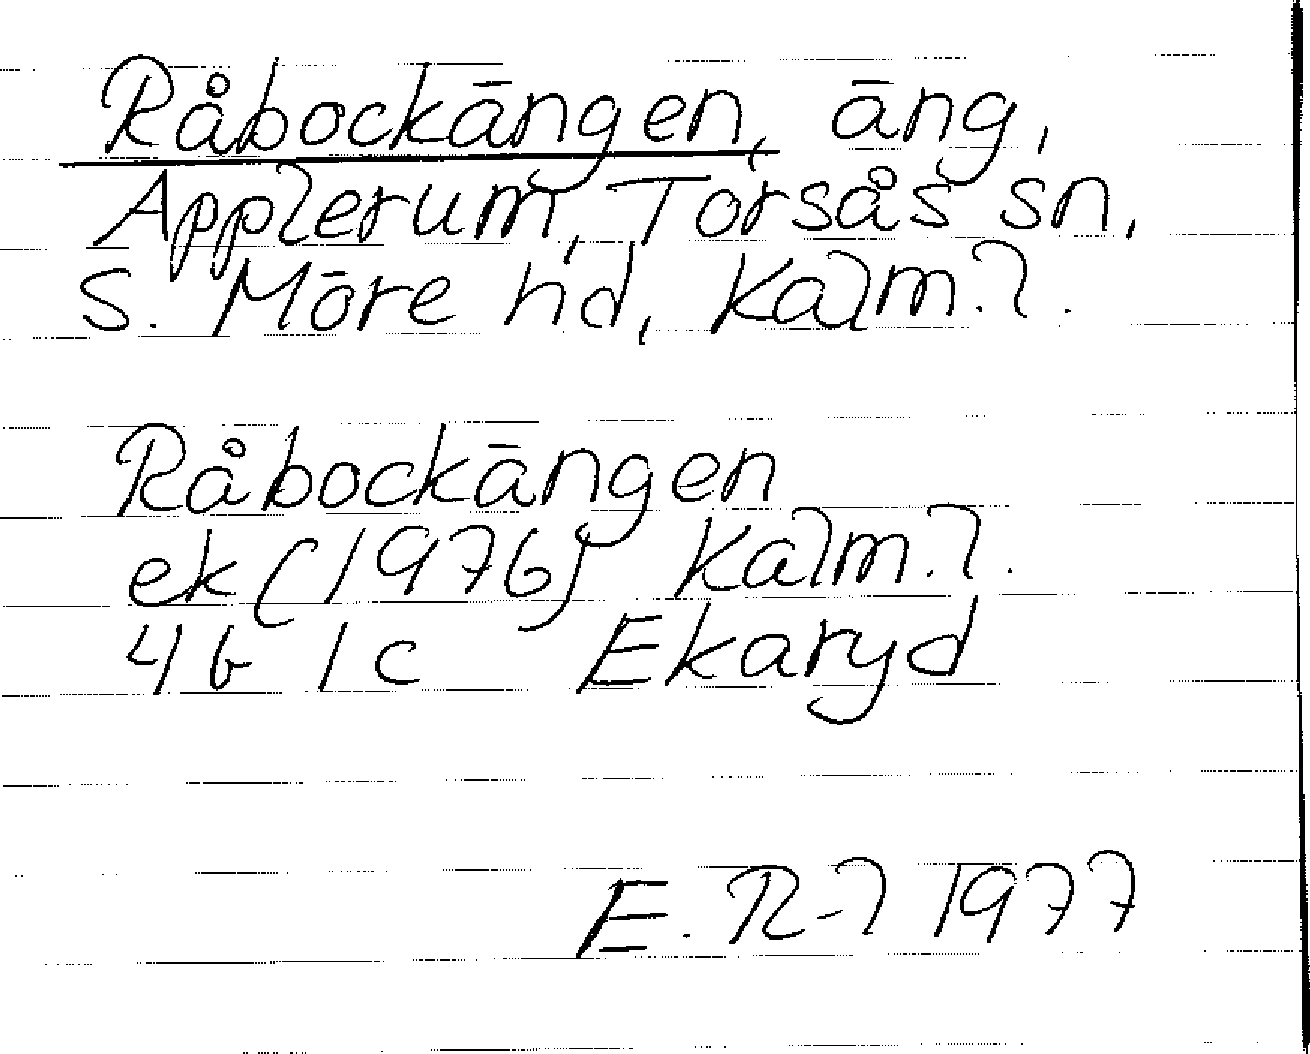 Råbockängen, äng,
Applerum, Torsås sn,
S. Möre hd, Kalm. l.
Råbockängen
ek (1976) Kalm. l.
4G 1c Ekaryd
E. R-l 1977